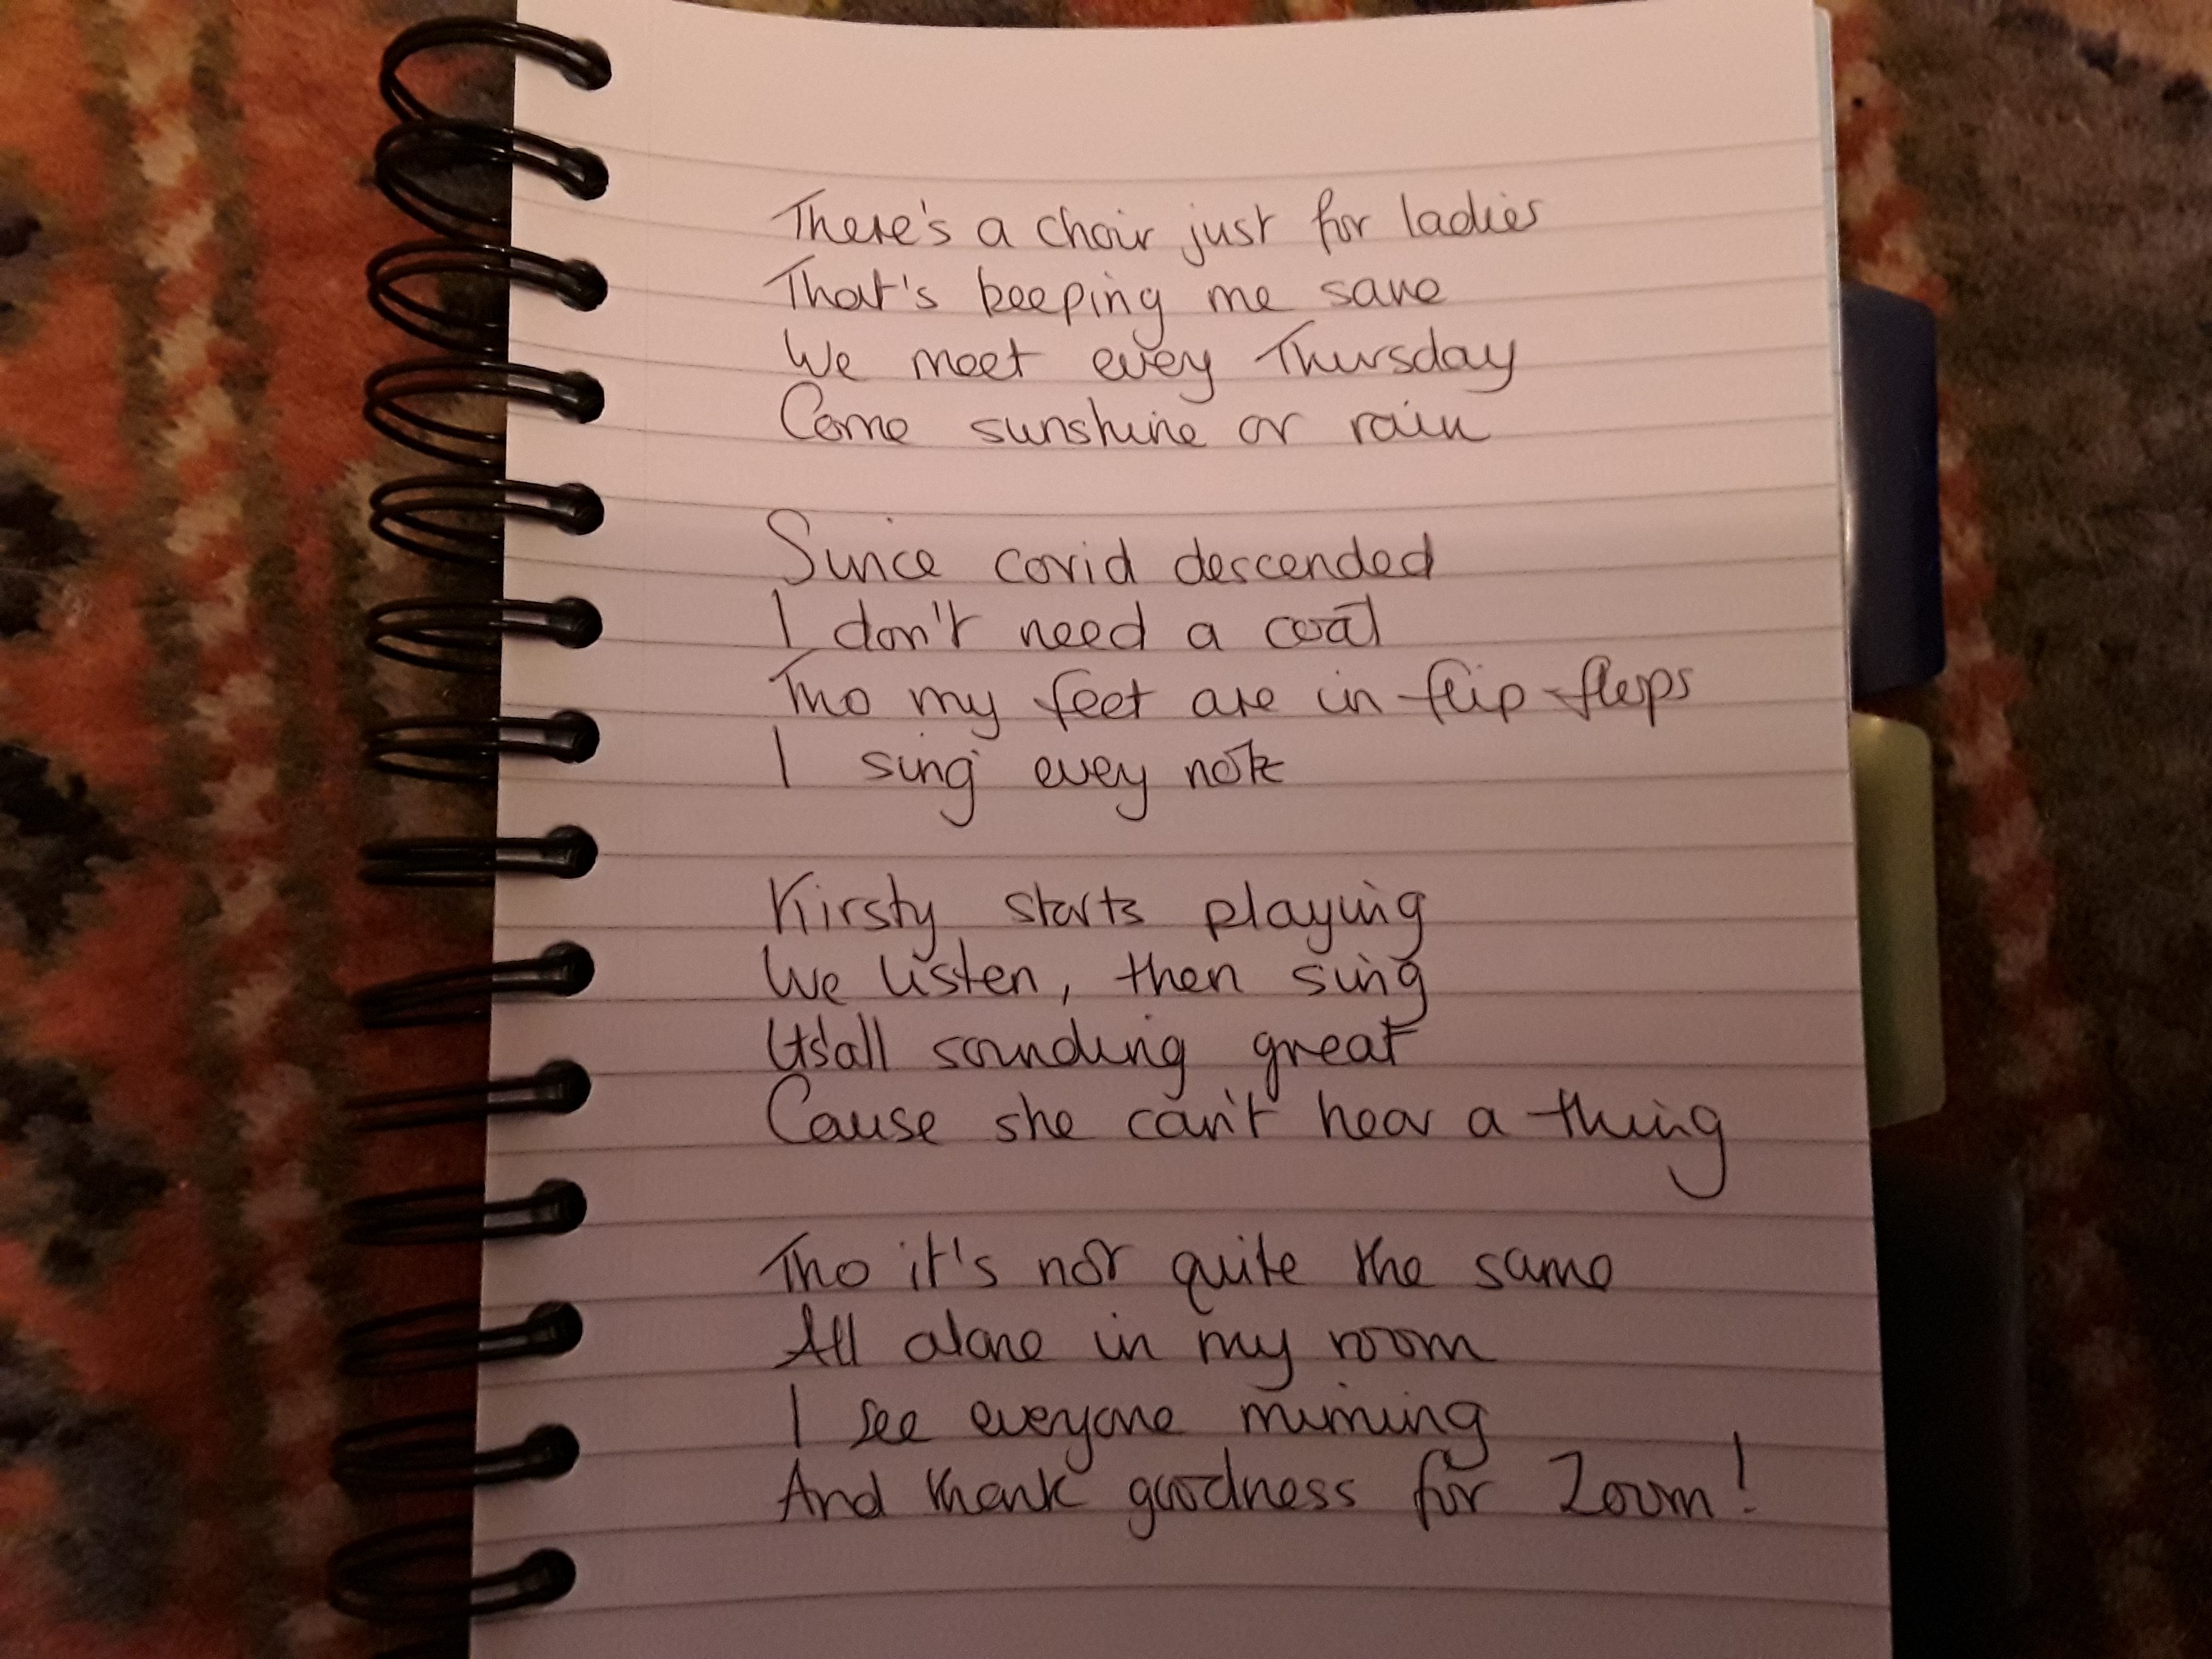 There's a choir just for ladies
That's keeping me sane
We meet every Thursday
Come sunshine or rain
Since covid descended
I don't need a coat
Tho my feet are in flip-flops
I sing every note
Kirsty starts playing
We listen, then sing
It's all sounding great
Cause she can't hear a thing
Tho it's not quite the same
All alone in my room
I see everyone miming
And thank goodness for Zoom!